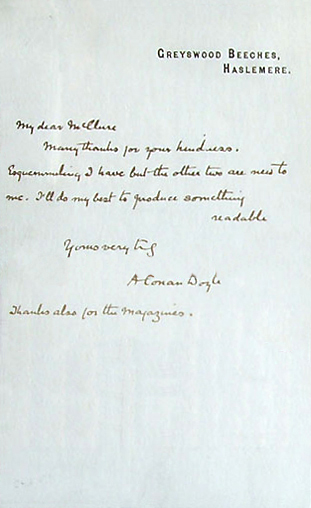 GREYSWOOD BEECHES,
HASLEMERE.
My dear McClure
Many thanks for your kindness.
I have but the other two are new to
me. I'll do my best to produce something
readable
Yours very truly
A Conan Doyle
Thanks also for the Magazines.